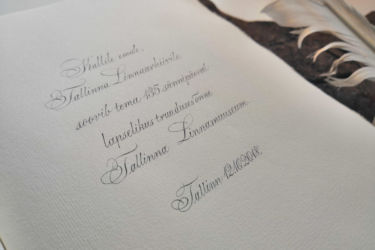 Kallile emale,
Tallinna Linnaarhiivile
soovib tema 135. sünnipäeval
lapselikus truuduses õnne
Tallinna Linnamuuseum.
Tallinn 12.10.2018